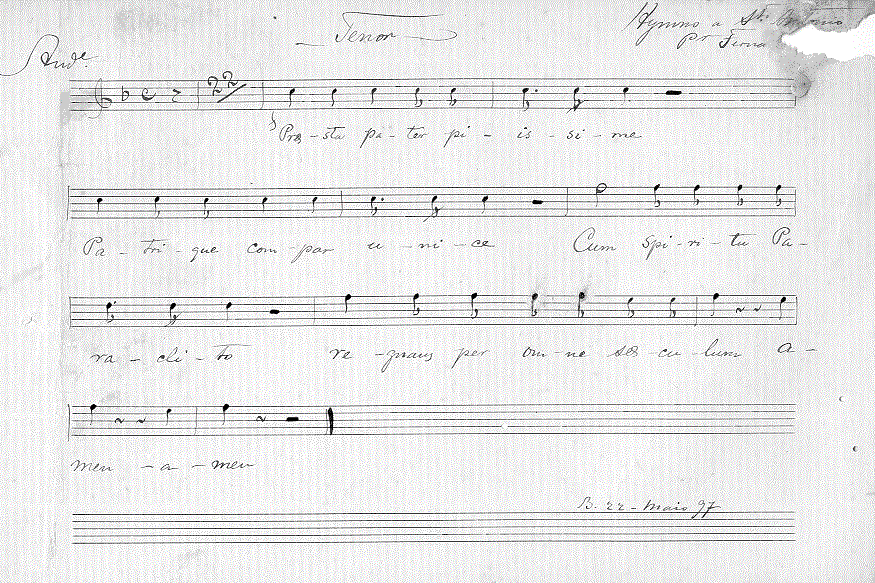 Tenor
Hymno a Sto. Antonio
pr
Ande.
22
Præ-sta pa-ter pi-is-si-me
Pa-tri-que com-par u-ni-ce Cum spi-ri-tu Pa-
ra-cli-to re-gnans per om-ne sæ-cu-lum a-
men-a-men
B. 22-Maio 97